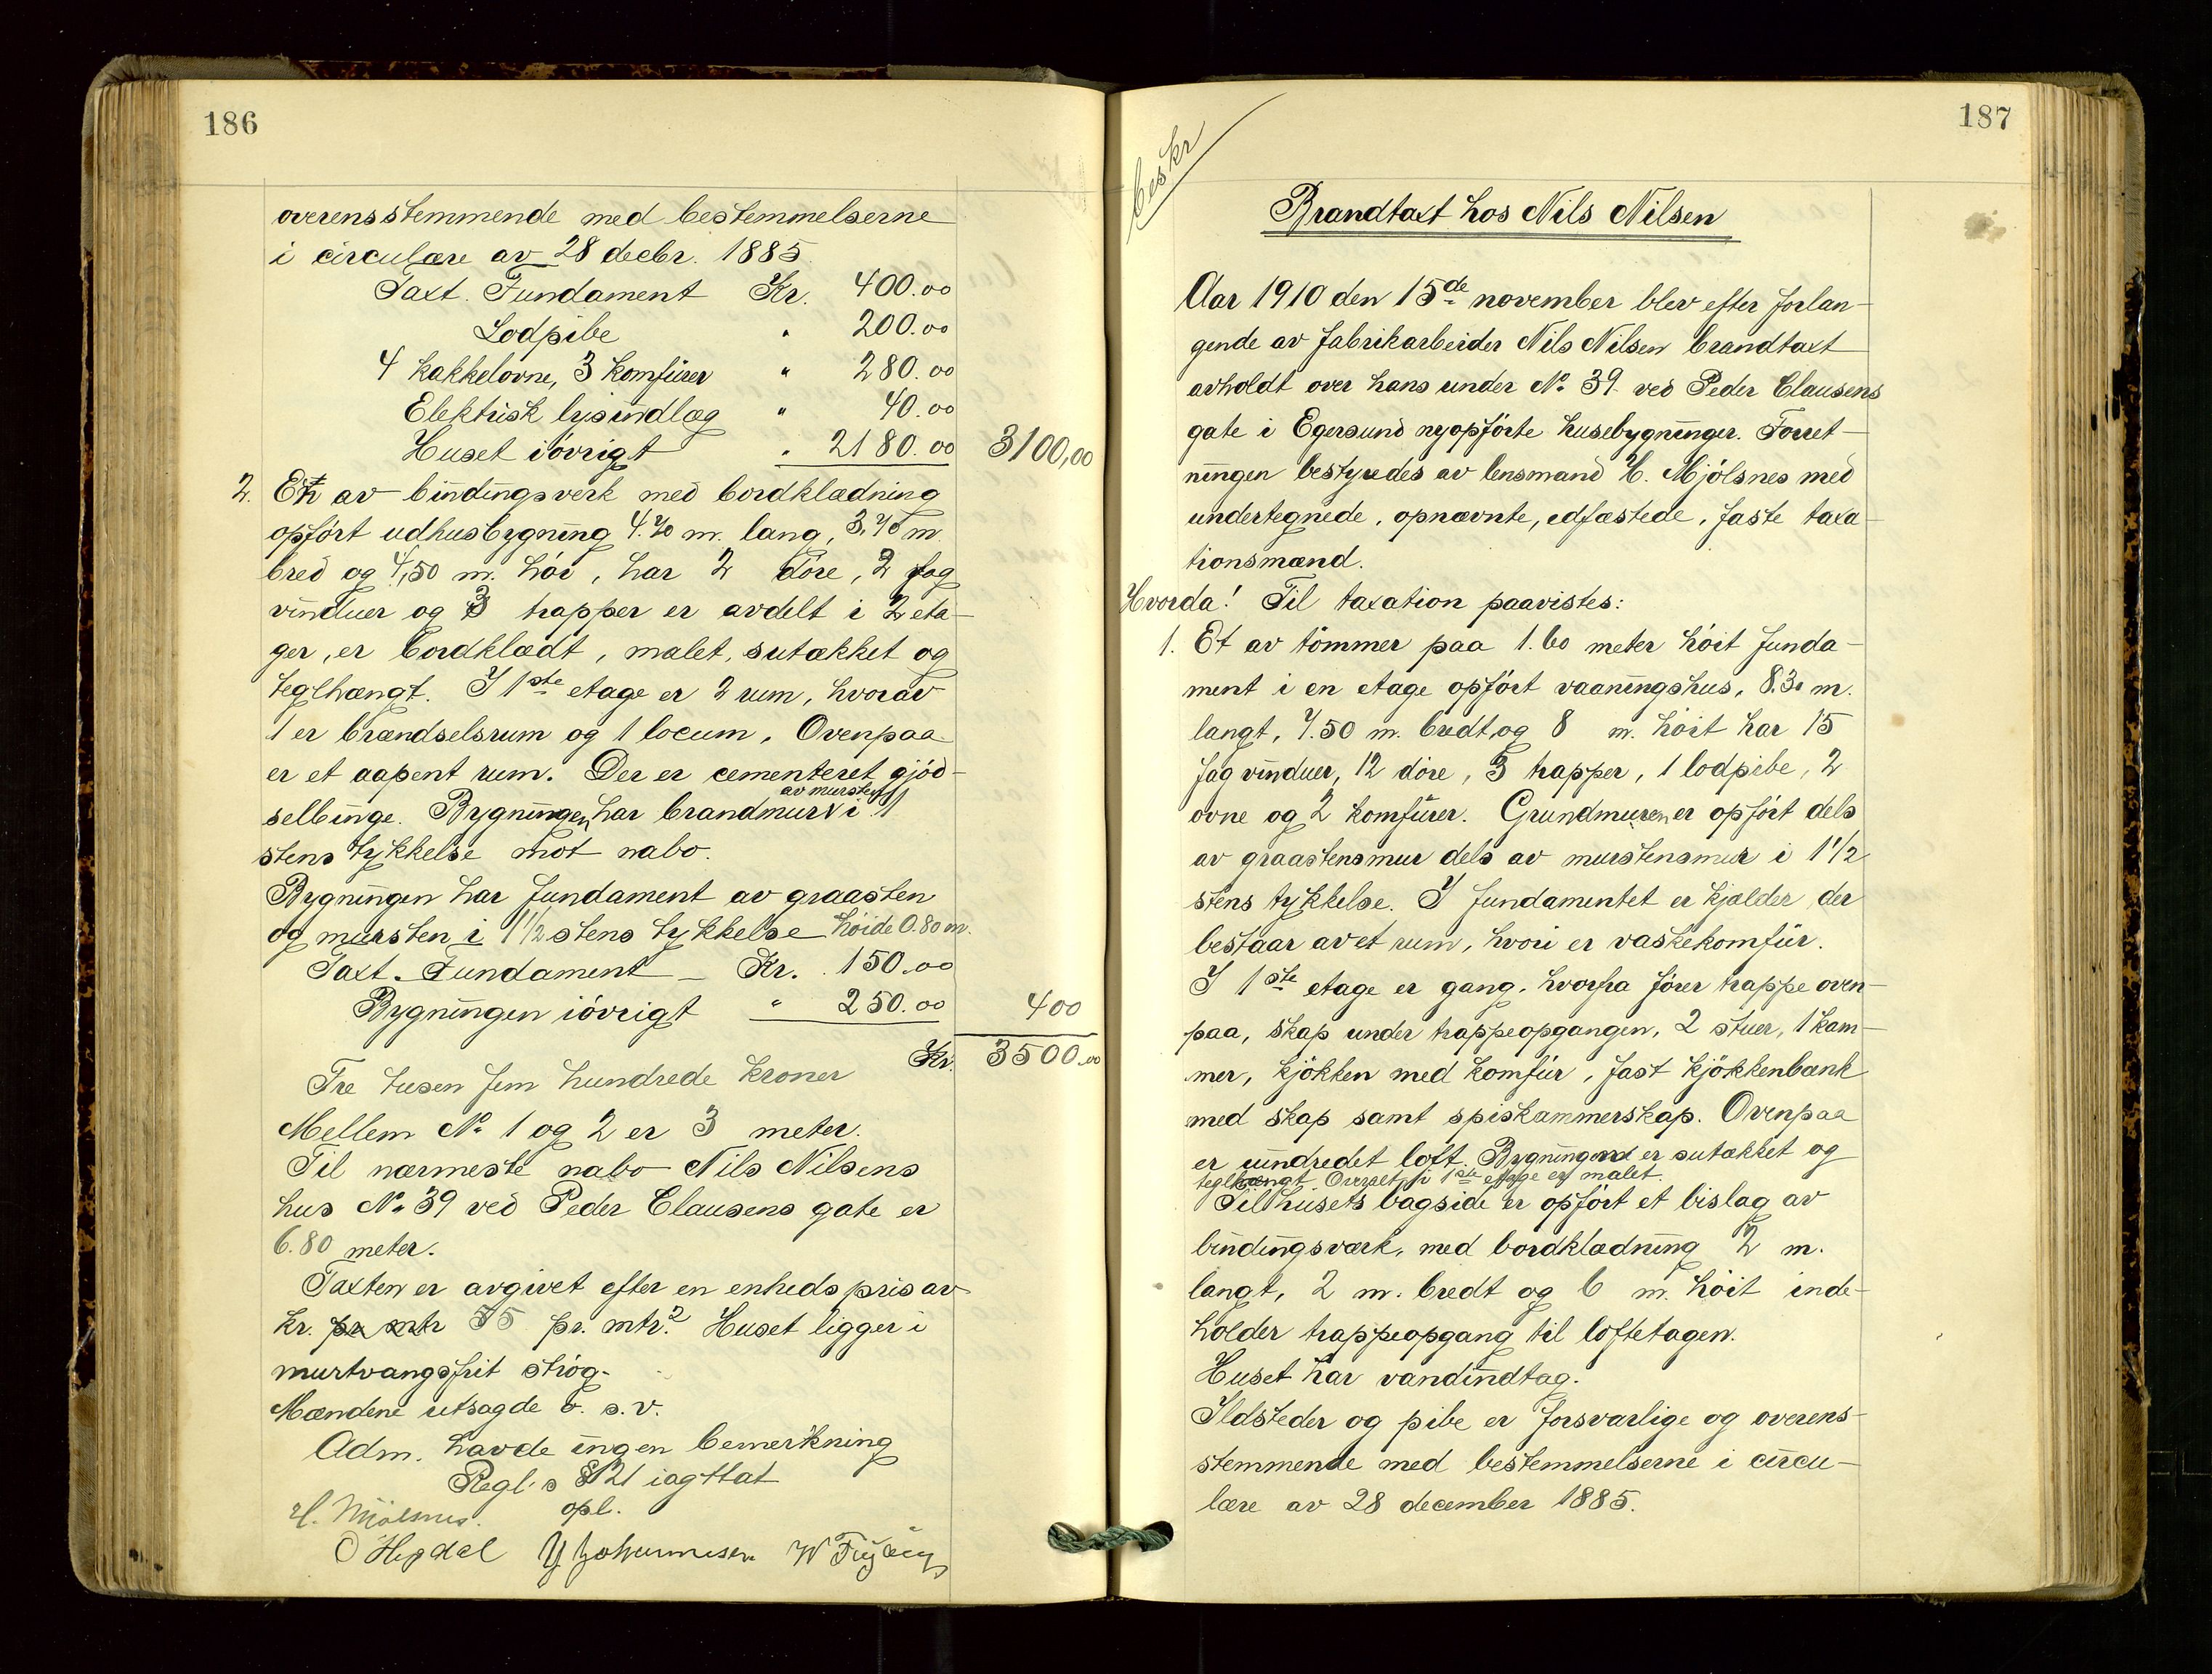 186
overensstemmende med bestemmelserne
i circulære av 28 decbr. 1885
Taxt. Fundament Kr. 400.00
Lodpibe " 200.00
4 kakkelovne, 3 komfürer " 280.00
Elektrisk lysindlæg " 40.00
Huset iövrigt " 2180.00 3100,00
2. Et av bindingsverk med bordklædning
opfört udhusbygning 4.70 m. lang, 3,70 m.
bred og 4,50 m. höi, har 2 döre, 2 fag
vinduer og 3 trapper er avdelt i 2 eta-
ger, er bordklædt, malet, sutækket og
teglhængt. I 1ste etage er 2 rum, hvorav
1 er brændselsrum og 1 locum. Ovenpaa
er et aapent rum. Der er cementeret gjöd-
av mursten
selbinge. Bygningen har brandmur i 1
stens tykkelse mot nabo.
Bygningen har fundament av graasten
og mursten i 1 1/2 stens tykkelse höide 0.80 m.
Taxt. Fundament - Kr. 150.00
Bygningen iövrigt " 250.00 400
Kr. 3500.00
Tre tusen fem hundrede kroner
Mellem No 1 og 2 er 3 meter.
Til nærmeste nabo Nils Nilsens
hus No 39 ved Peder Clausens gate er
6.80 meter.
Taxten er avgivet efter en enheds pris av
kr. pr mtr 55 pr. mtr.2 Huset ligger i
murtvangsfrit strög.
Mændene utsagde o. s. v.
Adm. havde ingen bemerkning
Regl.s § 21 iagttat
opl.
H. Mjölsnes.
O Hegdal Y Johannesen
187
beskr
Brandtaxt hos Nils Nilsen
Aar 1910 den 15de november blev efter forlan-
gende av fabrikarbeider Nils Nilsen brandtaxt
avholdt over hans under No 39 ved Peder Clausens
gate i Egersund nyopförte husebygninger. Forret-
ningen bestyredes av lensmand H. Mjölsnes med
undertegnede, opnævnte, edfæstede, faste taxa-
tionsmænd.
Hvorda! Til taxation paavistes:
1. Et av tömmer paa 1.60 meter höit funda-
ment i en etage opfört vaaningshus, 8.30 m.
langt, 7.50 m. bredt og 8 m. höit har 15
fag vinduer, 12 döre, 3 trapper, 1 lodpibe, 2
ovne og 2 komfürer. Grundmuren er opfört dels
av graastensmur dels av murstensmur i 1 1/2
stens tykkelse. I fundamentet er kjælder der
bestaar av et rum, hvori er vaskekomfür.
I 1ste etage er gang, hvorfra förer trappe oven-
paa, skap under trappeopgangen, 2 stuer, 1 kam-
mer, kjökken med komfür, fast kjökkenbænk
med skap samt spiskammerskap. Ovenpaa
er uindredet loft. Bygningen er sutækket og
teglhængt. Overalt i 1ste etage er malet.
Til husets bagside er opfört et bislag av
bindingsværk, med bordklædning 2 m.
langt, 2 m. bredt og 6 m. höit inde-
holder trappeopgang til loftetagen.
Huset har vandindtag.
Ildsteder og pibe er forsvarlige og overens-
stemmende med bestemmelserne i circu-
lære av 28 december 1885.